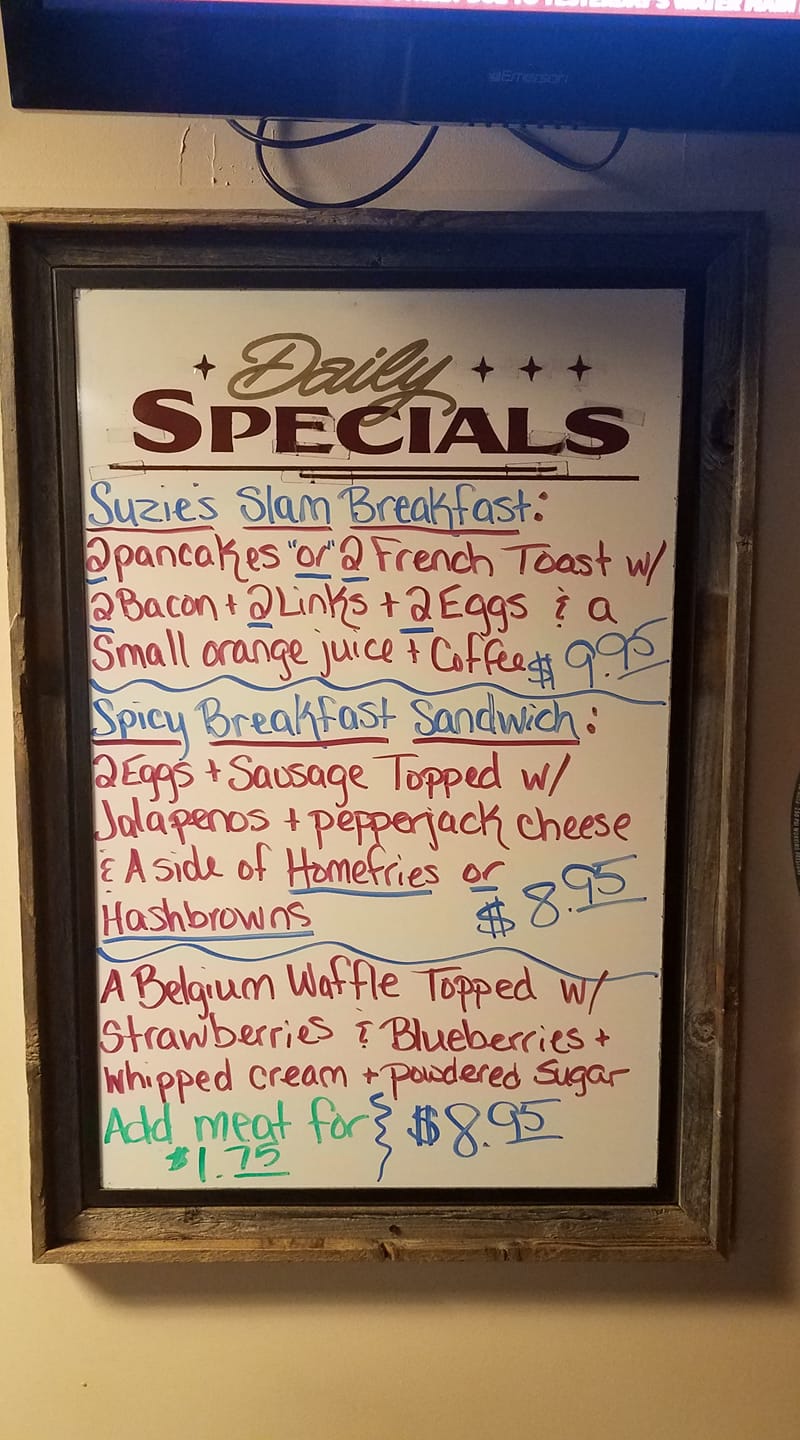 DUE TO YESTERDAY'S WATER MAIN
Emerson
Daily
SPECIALS
Suzie's Slam Breakfast:
2 pancakes "or" 2 French Toast w/
2 Bacon + 2 Links + 2 Eggs & a
Small orange juice + Coffee $9.95
Spicy Breakfast Sandwich:
2 Eggs + Sausage Topped w/
Jalapenos + pepperjack cheese
& A side of Homefries or
Hashbrowns $8.95
A Belgium Waffle Topped w/
Strawberries & Blueberries +
Whipped cream + powdered sugar
Add meat for } $8.95
$1.75